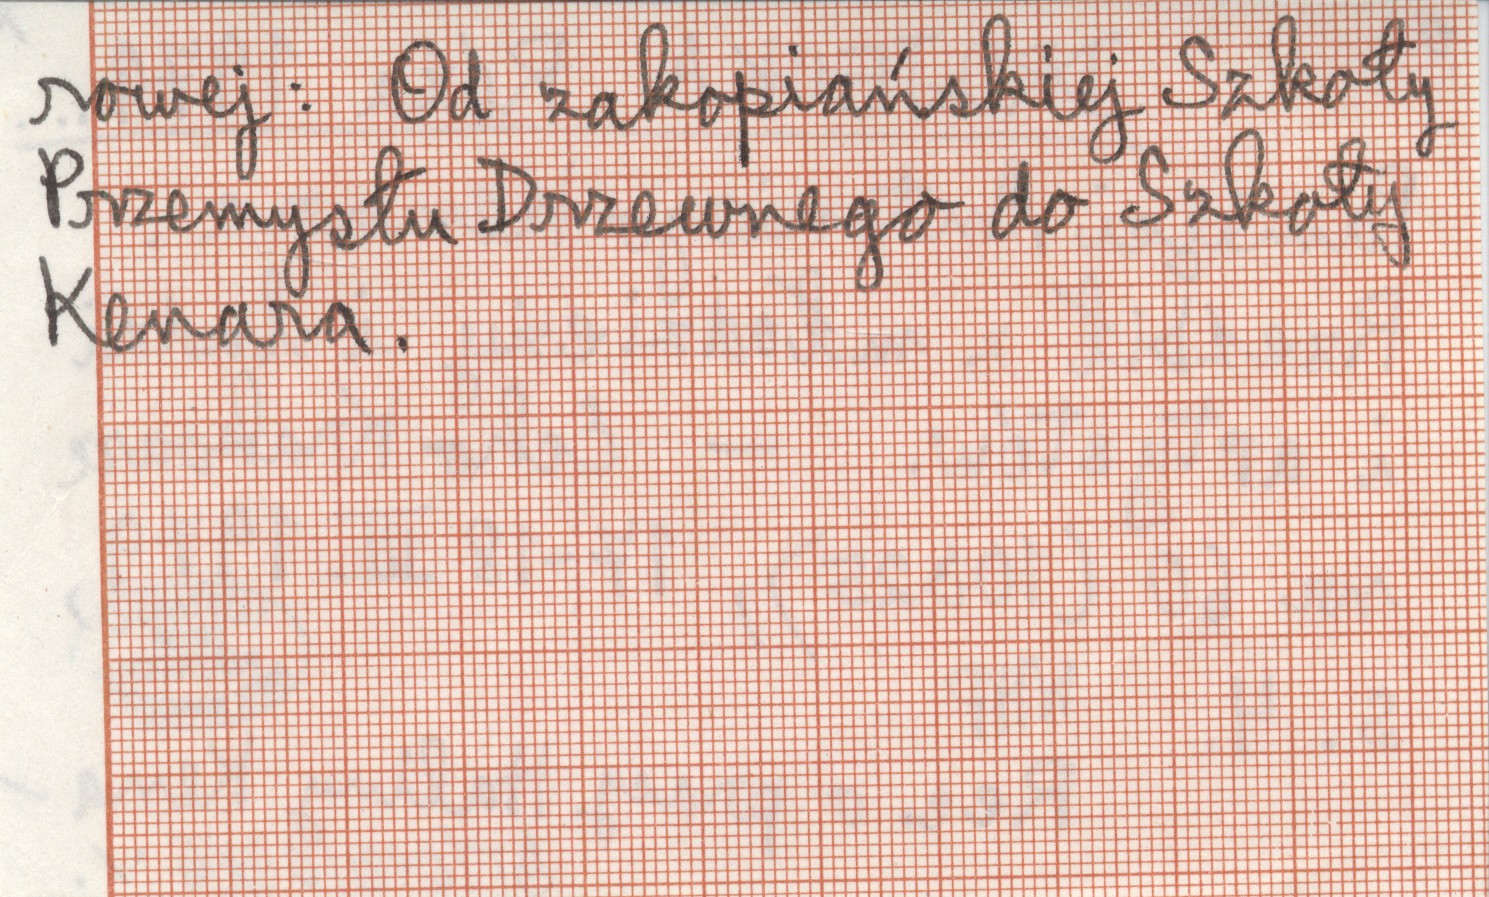 rowej: Od zakopiańskiej Szkoły
Przemysłu Drzewnego do Szkoły
Kenara.